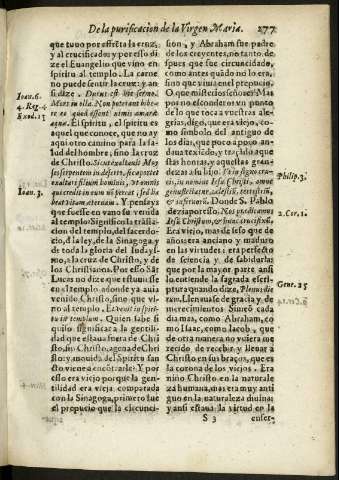 De la purificacion de la Virgen Maria. 277
que tuuo por afrẽta la cruz,
y al crucificado: y por esso di-
ze el Euangelio que vino en
spiritu al templo. La carne
no puede sentir la cruz: y an
si dize. Durus est hic sermo.
Mors in olla. Non poterant bibe-
re eo quod essent aquæ amaræ
El spiritu, el spiritu es
aquel que conoce, que no ay
aqui otro camino para la sa-
lud del hombre, sino la cruz
de Christo. Sicut exaltauit Moy
ses serpentem in deserto, sic oportet
exaltari filium hominis, vt omnis
qui credit in eum non pereat, sed ha
beat vitam æternam. Y pensays
que fuesse en vano su venida
al templo? Significò la trasla-
cion del templo, del sacerdo-
cio, d̃ la ley, de la Sinagoga, y
de toda la gloria del Iudays-
mo, a la cruz de Christo, y de
los Christianos. Por esso Sãt
Lucas no dize que estuuiesse
en el templo adonde ya auia
venido Christo, sino que vi-
no al templo. Et venit in spiri-
tu in templum. Quien sabe si
quiso significar a la gentili-
dad que estaua fuera de Chri
sto, sin Christo, agena de Christo
y mouida del Spiritu san
cto viene a encõtrarle? Y por
esso era viejo porque la gen-
tilidad era vieja comparada
con la Sinagoga, primero fue
el prepucio que la circunci-
Ioan. 6.
4. Reg. 4
Exod. 15
Ioan. 3.
sion, y Abraham fue padre
de los creyentes, no tanto de-
spues que fue circuncidado,
como antes quãdo no lo era,
sino que viuia en el prepucio.
O que misterios señores! Mas
por no esconderos vn punto
de lo que toca a vuestras ale-
grias, digo, que era viejo, co-
mo simbolo del antiguo de
los dias, que poco apoco an-
daua texiẽdo, y traçaua aque
stas honras, y aquestas gran-
dezas a su hijo. Vt in signo cru-
cis, in nomine Iesu Christi, omne
genuflectatur, cælestiũ, terrestriũ,
& infernorũ. Donde S. Pablo
dezia por esso. Nos prædicamus
Iesũ Christum, & hunc crucifixũ.
Era viejo, mas de seso que de
años: era anciano y maduro
en las virtudes: era perfecto
de sciencia y de sabiduria:
que por la mayor parte ansi
lo entiende la sagrada escri-
ptura quando dize, Plenus die-
rum. Lleno auase de gracia y de
merecimientos Simeõ cada
dia mas, como Abraham, co
mo Isaac, como Iacob, que
de otra manera no viuiera me
recido de recebir y lleuar a
Christo en sus braços, que es
la corona de los viejos. Era
niño Christo en la naturale
za humana, mas era muy anti
guo en la naturaleza diuina;
y ansi estaua la virtud en la
Philip. 2,
2. Cor. 1.
Gene. 25
S 3 enfer-